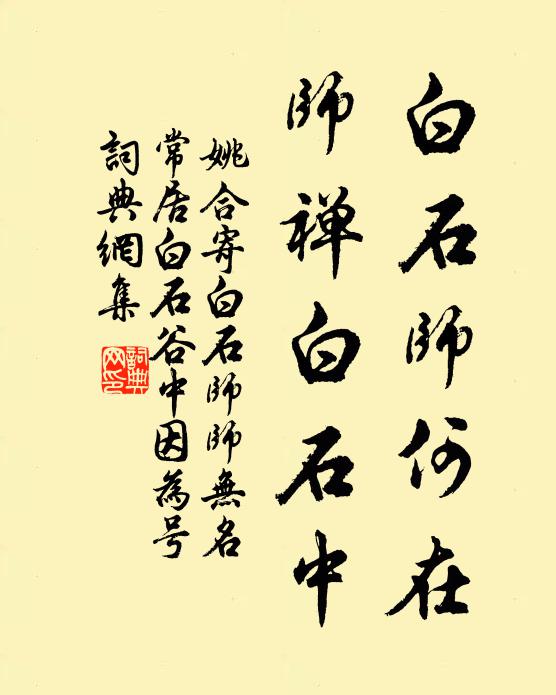 白石師何在
師禅白石中
姚合寄白石師師無名
常居白石谷中因為号
詞典網集
詞典
网印